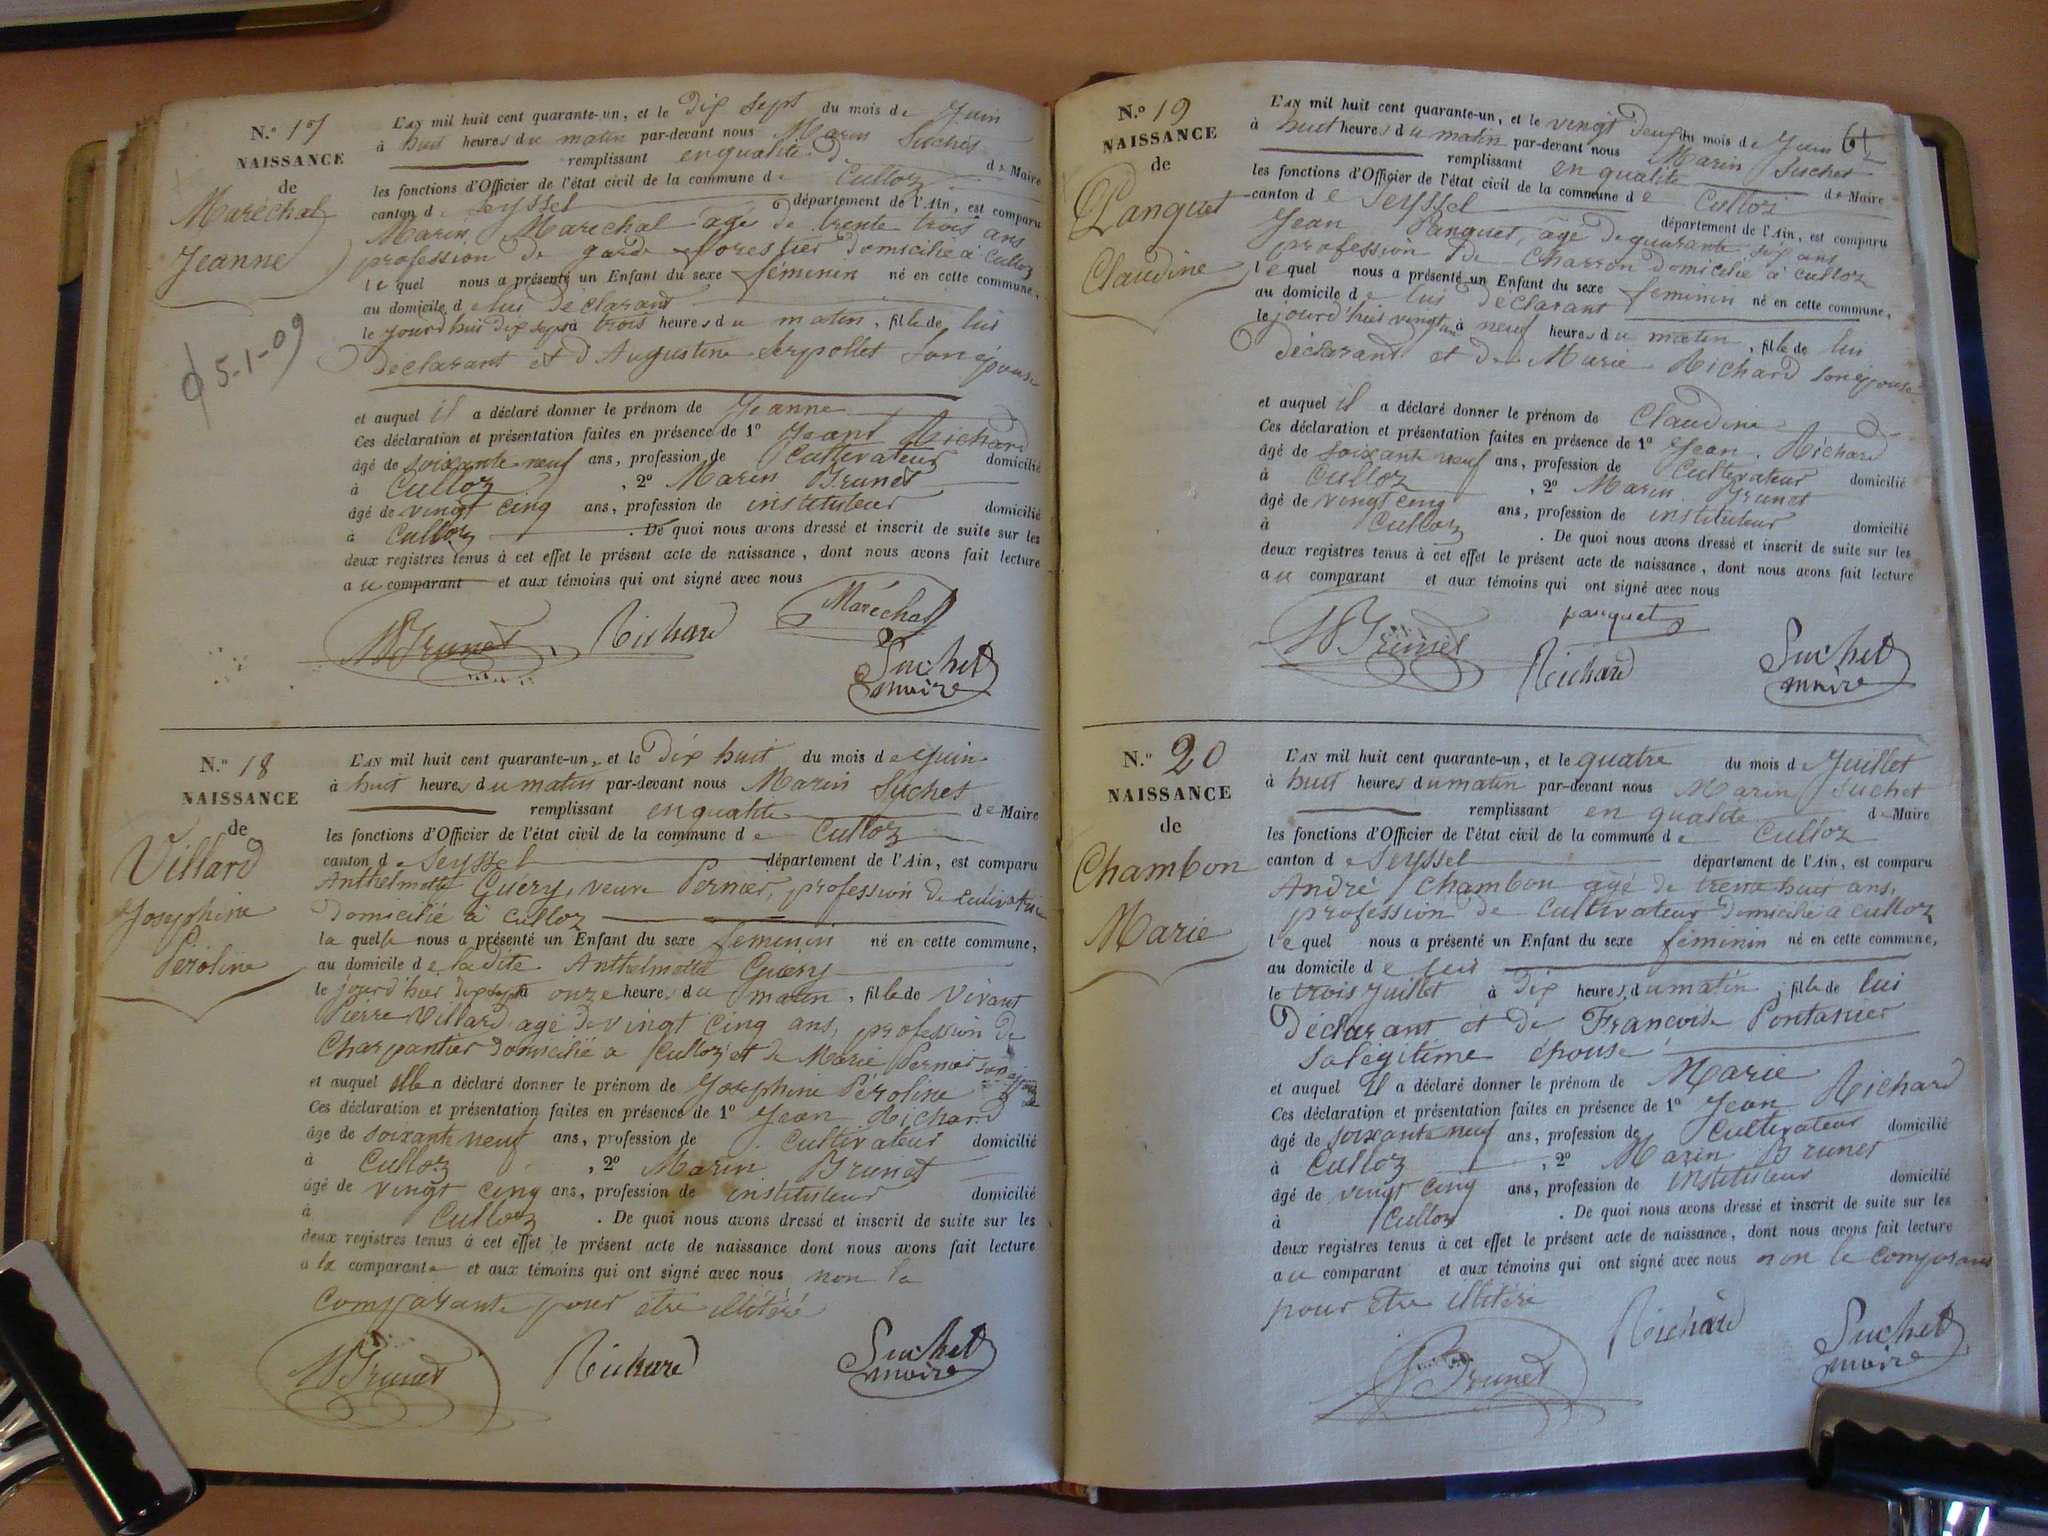 N.º 17
NAISSANCE
de
Maréchal
Jeanne
5-1-09
L'AN mil huit cent quarante-un, et le dix sept du mois de Juin
à huit heures du matin par-devant nous Marin Suchet
remplissant en qualité de Maire
les fonctions d'Officier de l'état civil de la commune de Culloz
canton de Seyssel département de l'Ain, est comparu
Marin Marechal agé de trente trois ans
profession de garde forestier domicilié à Culloz
lequel nous a présenté un Enfant du sexe féminin né en cette commune,
au domicile de lui déclarant
le jourd'hui dix sept à trois heures du matin, fille de lui
déclarant et d'Augustine Serpollet son épouse
et auquel il a déclaré donner le prénom de Jeanne
Ces déclaration et présentation faites en présence de 1º Jean Richard
âgé de soixante neuf ans, profession de Cultivateur domicilié
à Culloz, 2º Marin Brunet
âgé de vingt cinq ans, profession de instituteur domicilié
à Culloz. De quoi nous avons dressé et inscrit de suite sur les
deux registres tenus à cet effet le présent acte de naissance, dont nous avons fait lecture
au comparant et aux témoins qui ont signé avec nous
Maréchal
Brunet Richard
Suchet
maire
N.º 18
NAISSANCE
de
Villard
Josephine
Péroline
L'AN mil huit cent quarante-un, et le dix huit du mois de Juin
à huit heures du matin par-devant nous Marin Suchet
remplissant en qualité de Maire
les fonctions d'Officier de l'état civil de la commune de Culloz
canton de Seyssel département de l'Ain, est comparu
Anthelmette Guéry, veuve Pernier, profession de cultivatrice
domicilié à Culloz
laquelle nous a présenté un Enfant du sexe feminin né en cette commune,
au domicile de la dite Anthelmette Guéry
le jourd'hier dix sept à onze heures du matin, fille de Vivant
Pierre Villard agé de vingt cinq ans, profession de
Charpantier domicilié a Culloz et de Marie Pernier son épouse
et auquel elle a déclaré donner le prénom de Josephine Péroline
Ces déclaration et présentation faites en présence de 1º Jean Richard
âge de soixante neuf ans, profession de Cultivateur domicilié
à Culloz, 2º Marin Brunet
âgé de vingt cinq ans, profession de instituteur domicilié
à Culloz. De quoi nous avons dressé et inscrit de suite sur les
deux registres tenus à cet effet le présent acte de naissance dont nous avons fait lecture
a la comparante et aux témoins qui ont signé avec nous non la
comparante pour etre illitéré
Brunet Richard Suchet
maire
61
N.º 19
NAISSANCE
de
Panquet
Claudine
L'AN mil huit cent quarante-un, et le vingt deux du mois de Juin
à huit heures du matin par-devant nous Marin Suchet
remplissant en qualité de Maire
les fonctions d'Officier de l'état civil de la commune de Culloz
canton de Seyssel département de l'Ain, est comparu
Jean Panquet, agé de quarante six ans
profession de Charron domicilié à Culloz
lequel nous a présenté un Enfant du sexe feminin né en cette commune,
au domicile de lui déclarant
le jourd'hier vingt un à neuf heures du matin, fille de lui
déclarant et de Marie Richard son épouse
et auquel il a déclaré donner le prénom de Claudine
Ces déclaration et présentation faites en présence de 1º Jean Richard
âgé de soixante neuf ans, profession de Cultivateur domicilié
à Culloz, 2º Marin Brunet
âgé de vingt cinq ans, profession de instituteur domicilié
à Culloz. De quoi nous avons dressé et inscrit de suite sur les
deux registres tenus à cet effet le présent acte de naissance, dont nous avons fait lecture
au comparant et aux témoins qui ont signé avec nous
panquet
Brunet Richard Suchet
maire
N.º 20
NAISSANCE
de
Chambon
Marie
L'AN mil huit cent quarante-un, et le quatre du mois de Juillet
à huit heures du matin par-devant nous Marin Suchet
remplissant en qualité de Maire
les fonctions d'Officier de l'état civil de la commune de Culloz
canton de Seyssel département de l'Ain, est comparu
André Chambon agé de trente huit ans,
profession de Cultivateur domicilié à Culloz
lequel nous a présenté un Enfant du sexe féminin né en cette commune,
au domicile de lui
le trois Juillet à dix heures du matin, fille de lui
déclarant et de Francoise Pontanier
sa légitime épouse
et auquel il a déclaré donner le prénom de Marie
Ces déclaration et présentation faites en présence de 1º Jean Richard
âgé de soixante neuf ans, profession de Cultivateur domicilié
à Culloz, 2º Marin Brunet
âgé de vingt cinq ans, profession de instituteur domicilié
à Culloz. De quoi nous avons dressé et inscrit de suite sur les
deux registres tenus à cet effet le présent acte de naissance, dont nous avons fait lecture
au comparant et aux témoins qui ont signé avec nous non le comparant
pour etre illitéré
Brunet Richard Suchet
maire